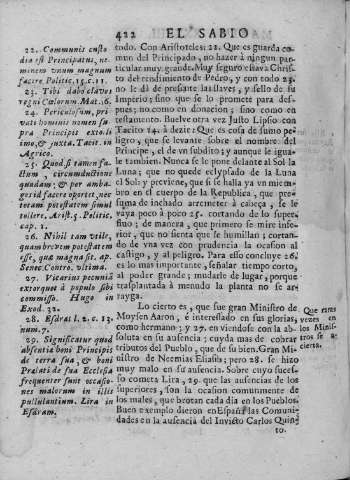 422 EL SABIO
22. Communis custo
dia est Principatus, ne-
minem vnum magnum
facere. Politic. 15. c. 11.
23. Tibi dabo claves
regni Cœlorum Mat. 16.
24. Periculosum, pri
vati hominis nomen su
pra Principis extolli
imo, & juxta. Tacit. in
Agrico.
25. Quod si tamen fa-
ctum, circunductione
quadam; & per amba-
ges id facere oportet, nec
totam potestatem simul
tollere. Arist. 5. Politic.
cap. 1.
26. Nihil tam vtile,
quam brevem potestatem
esse, quæ magna sit. ap.
Senec Contro. vltima.
27. Vicarius pecuniã
extorquet à populo sibi
commisso. Hugo in
Exod. 32.
28. Esdræ l. 2. c. 13.
num. 7.
29. Significatur quod
absentia boni Principis
de terra sua, & boni
Prælati de sua Ecclesia
frequenter sunt occasio-
nes malorum in illis
pullulantium. Lira in
Esdram.
todo. Con Aristoteles: 22. Que es guarda co-
mun del Principado, no hazer à ningun par-
ticular muy grande. Muy seguro estava Chris-
to del rendimiento de Pedro, y con todo 23.
no le dà de presente las llaves, y sello de su
Imperio; sino que se lo promete para des-
pues; no como en donacion; sino como en
testamento. Buelve otra vez Justo Lipsio con
Tacito 24. à dezir: Que es cosa de sumo pe-
ligro, que se levante sobre el nombre del
Principe, el de vn subdito; y aunque le igua-
le tambien. Nunca se le pone delante al Sol la
Luna; que no quede eclypsado de la Luna
el Sol y previene, que si se halla ya vn miem-
bro en el cuerpo de la Republica, que pre-
suma de inchado arremeter à cabeça, se le
vaya poco à poco 25. cortando de lo super-
fluo; de manera, que primero se mire infe-
rior, que no sienta que le humillan; cortan-
do de vna vez con prudencia la ocasion al
castigo, y al peligro. Para esso concluye 26.
es lo mas importante, señalar tiempo corto,
al poder grande; mudarle de lugar, porque
trasplantada à menudo la planta no se ar-
rayga.
Lo cierto es, que fue gran Ministro de
Moysen Aaron, è interessado en sus glorias,
como hermano; y 27. en viendose con la ab-
soluta en su ausencia; cuyda mas de cobrar
tributos del Pueblo, que de su bien. Gran Mi-
nistro de Neemias Eliasib; pero 28. se hizo
muy malo en su ausencia. Sobre cuyo suces-
so comenta Lira, 29. que las ausencias de los
superiores, son la ocasion comunmente de
los males, que brotan cada dia en los Pueblos.
Buen exemplo dieron en España las Comuni-
dades en la ausencia del Invicto Carlos Quin-
to.
vezes en
los Minis-
tros se a-
cierta.